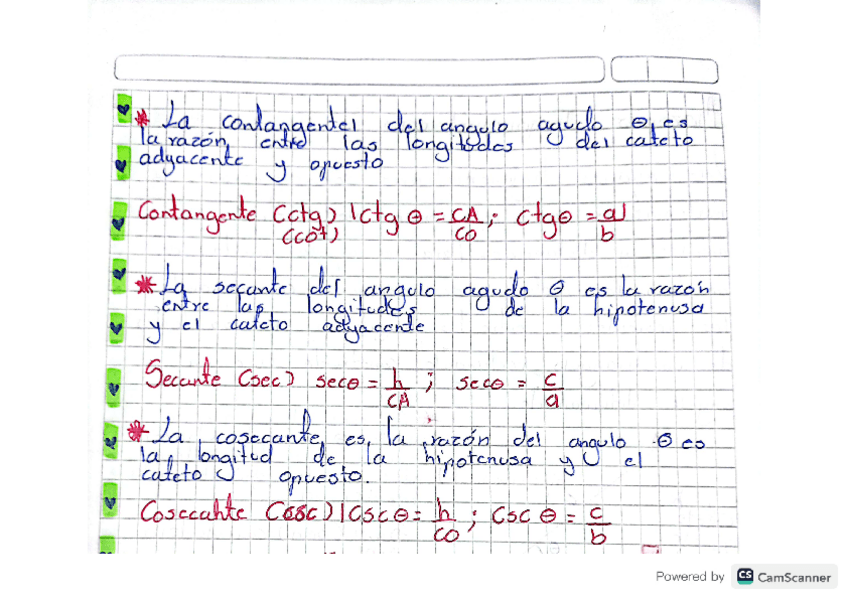 * La contangentel del angulo agudo θ, es
la razón, entre las longitudes del cateto
adyacente y opuesto
Contangente (ctg) | ctg θ = CA/CO; ctgθ = a/b
(cot)
* La secante del angulo agudo θ es la razón
entre las longitudes de la hipotenusa
y el cateto adyacente
Secante (sec) secθ = h/CA; secθ = c/a
* La cosecante, es, la razón del angulo θ es
la longitud de la hipotenusa y el
cateto opuesto.
Cosecahte (csc) | Cscθ = h/CO; Csc θ = c/b
Powered by CS CamScanner